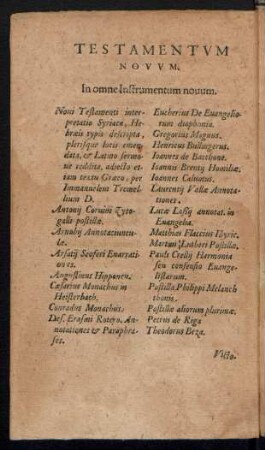 TESTAMENTVM
NOVVM.
In omne Instrumentum nouum.
Noui Testamenti inter-
pretatio Syriaca, He-
braicis typis descripta,
plerisque locis emen-
data, et Latino sermo-
ne reddita, adiecto et-
iam textu Græco, per
Immanuelem Tremel-
lium D.
Antonij Coruini Zyto-
galli postillæ.
Arnobij Annotatiuncu-
læ.
Arsatij Seoferi Enarrati-
ones.
Augustinus Hipponen.
Cæsarius Monachus in
Heisterbach.
Conradus Monachus.
Des. Erasmi Rotero. An-
notationes & Paraphra-
ses.
Eucherius De Euangelio-
rum diaphonia.
Gregorius Magnus.
Henricus Bullingerus.
Ioannes de Bacchone.
Ioannis Brentij Homiliæ.
Ioannes Caluinus.
Laurentij Vallæ Annota-
tiones.
Lucæ Lossij annotat. in
Euangelia.
Matthias Flaccius Illyric.
Martini Lutheri Postillæ.
Pauli Crellij Harmonia
seu consensio Euange-
listarum.
Postillæ Philippi Melanch
thonis.
Postillæ aliorum plurimæ.
Petrus de Riga
Theodorus Beza.
Victo-